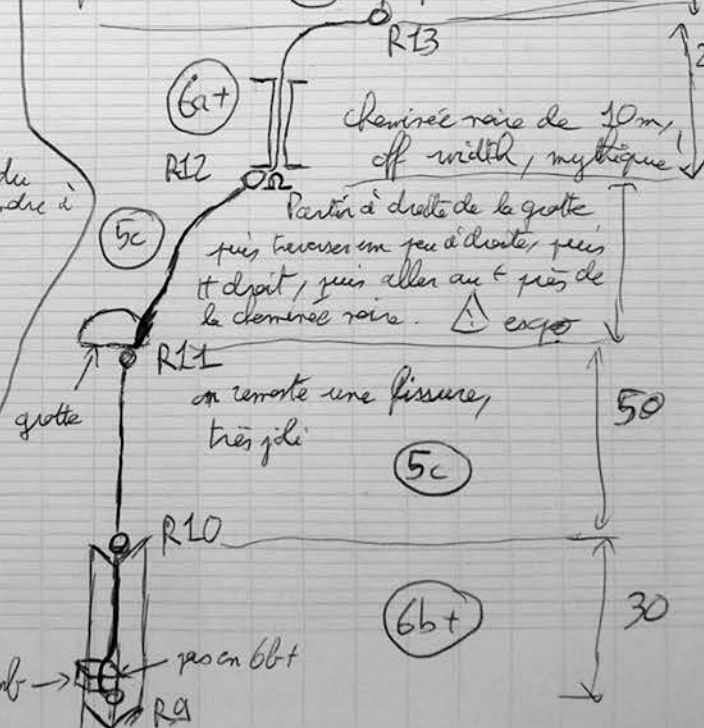 R13
2
6a+
cheminée noire de 10m,
off width, mythique !
R12
Ω
du
Partir à droite de la grotte
5c
puis traverser un peu à droite, puis
tt droit, puis aller au + près de
la cheminée noire. ! expo
R11
grotte
on remonte une fissure,
très joli
50
5c
R10
6b+
30
pas en 6b+
R9